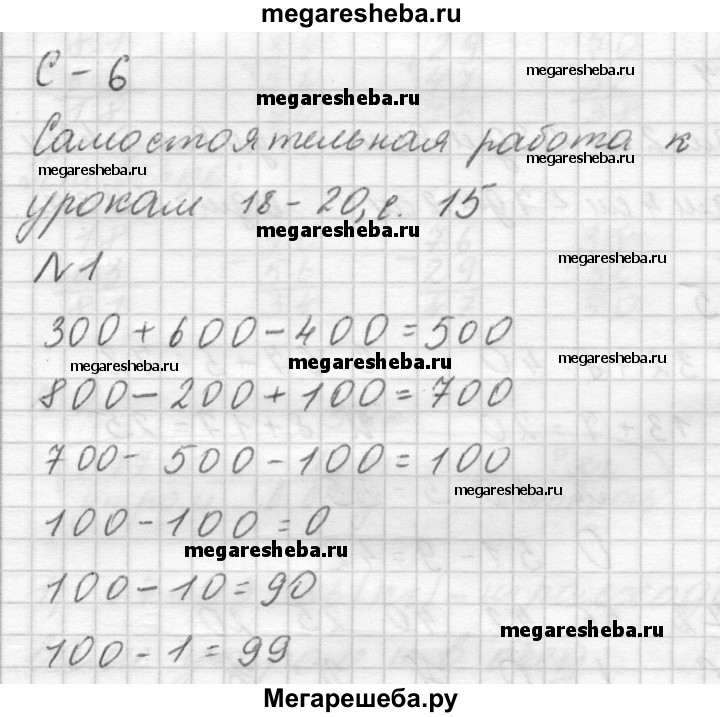 megaresheba.ru
С - 6
megaresheba.ru
megaresheba.ru
Самостоятельная работа к
megaresheba.ru
megaresheba.ru
урокам 18 - 20, с. 15
megaresheba.ru
megaresheba.ru
N 1
megaresheba.ru
300 + 600 - 400 = 500
megaresheba.ru
megaresheba.ru
megaresheba.ru
800 - 200 + 100 = 700
700 - 500 - 100 = 100
megaresheba.ru
100 - 100 = 0
megaresheba.ru
100 - 10 = 90
megaresheba.ru
100 - 1 = 99
Мегарешеба.ру